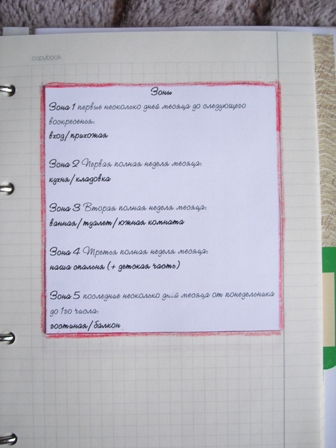 copybook
Зоны
Зона 1 первые несколько дней месяца до следующего
воскресенья:
вход/прихожая
Зона 2 Первая полная неделя месяца:
кухня/кладовка
Зона 3 Вторая полная неделя месяца:
ванная/туалет/южная комната
Зона 4 Третья полная неделя месяца:
наша спальня (+ детская часть)
Зона 5 последние несколько дней месяца от понедельника
до 1го числа:
гостиная/балкон